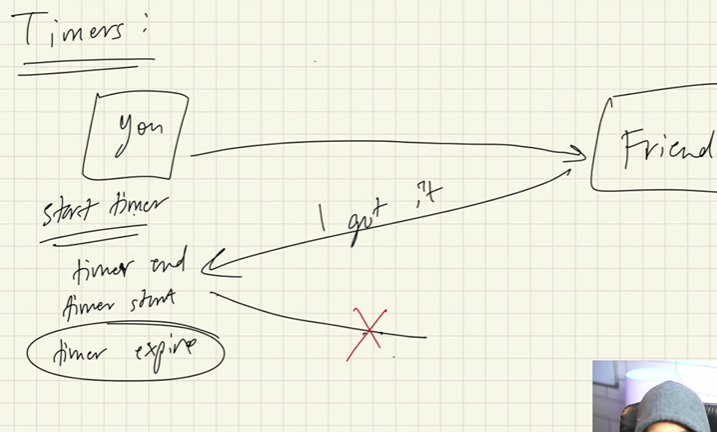 Timers:
You
Friend
start timer
I got it
timer end
timer start
timer expire